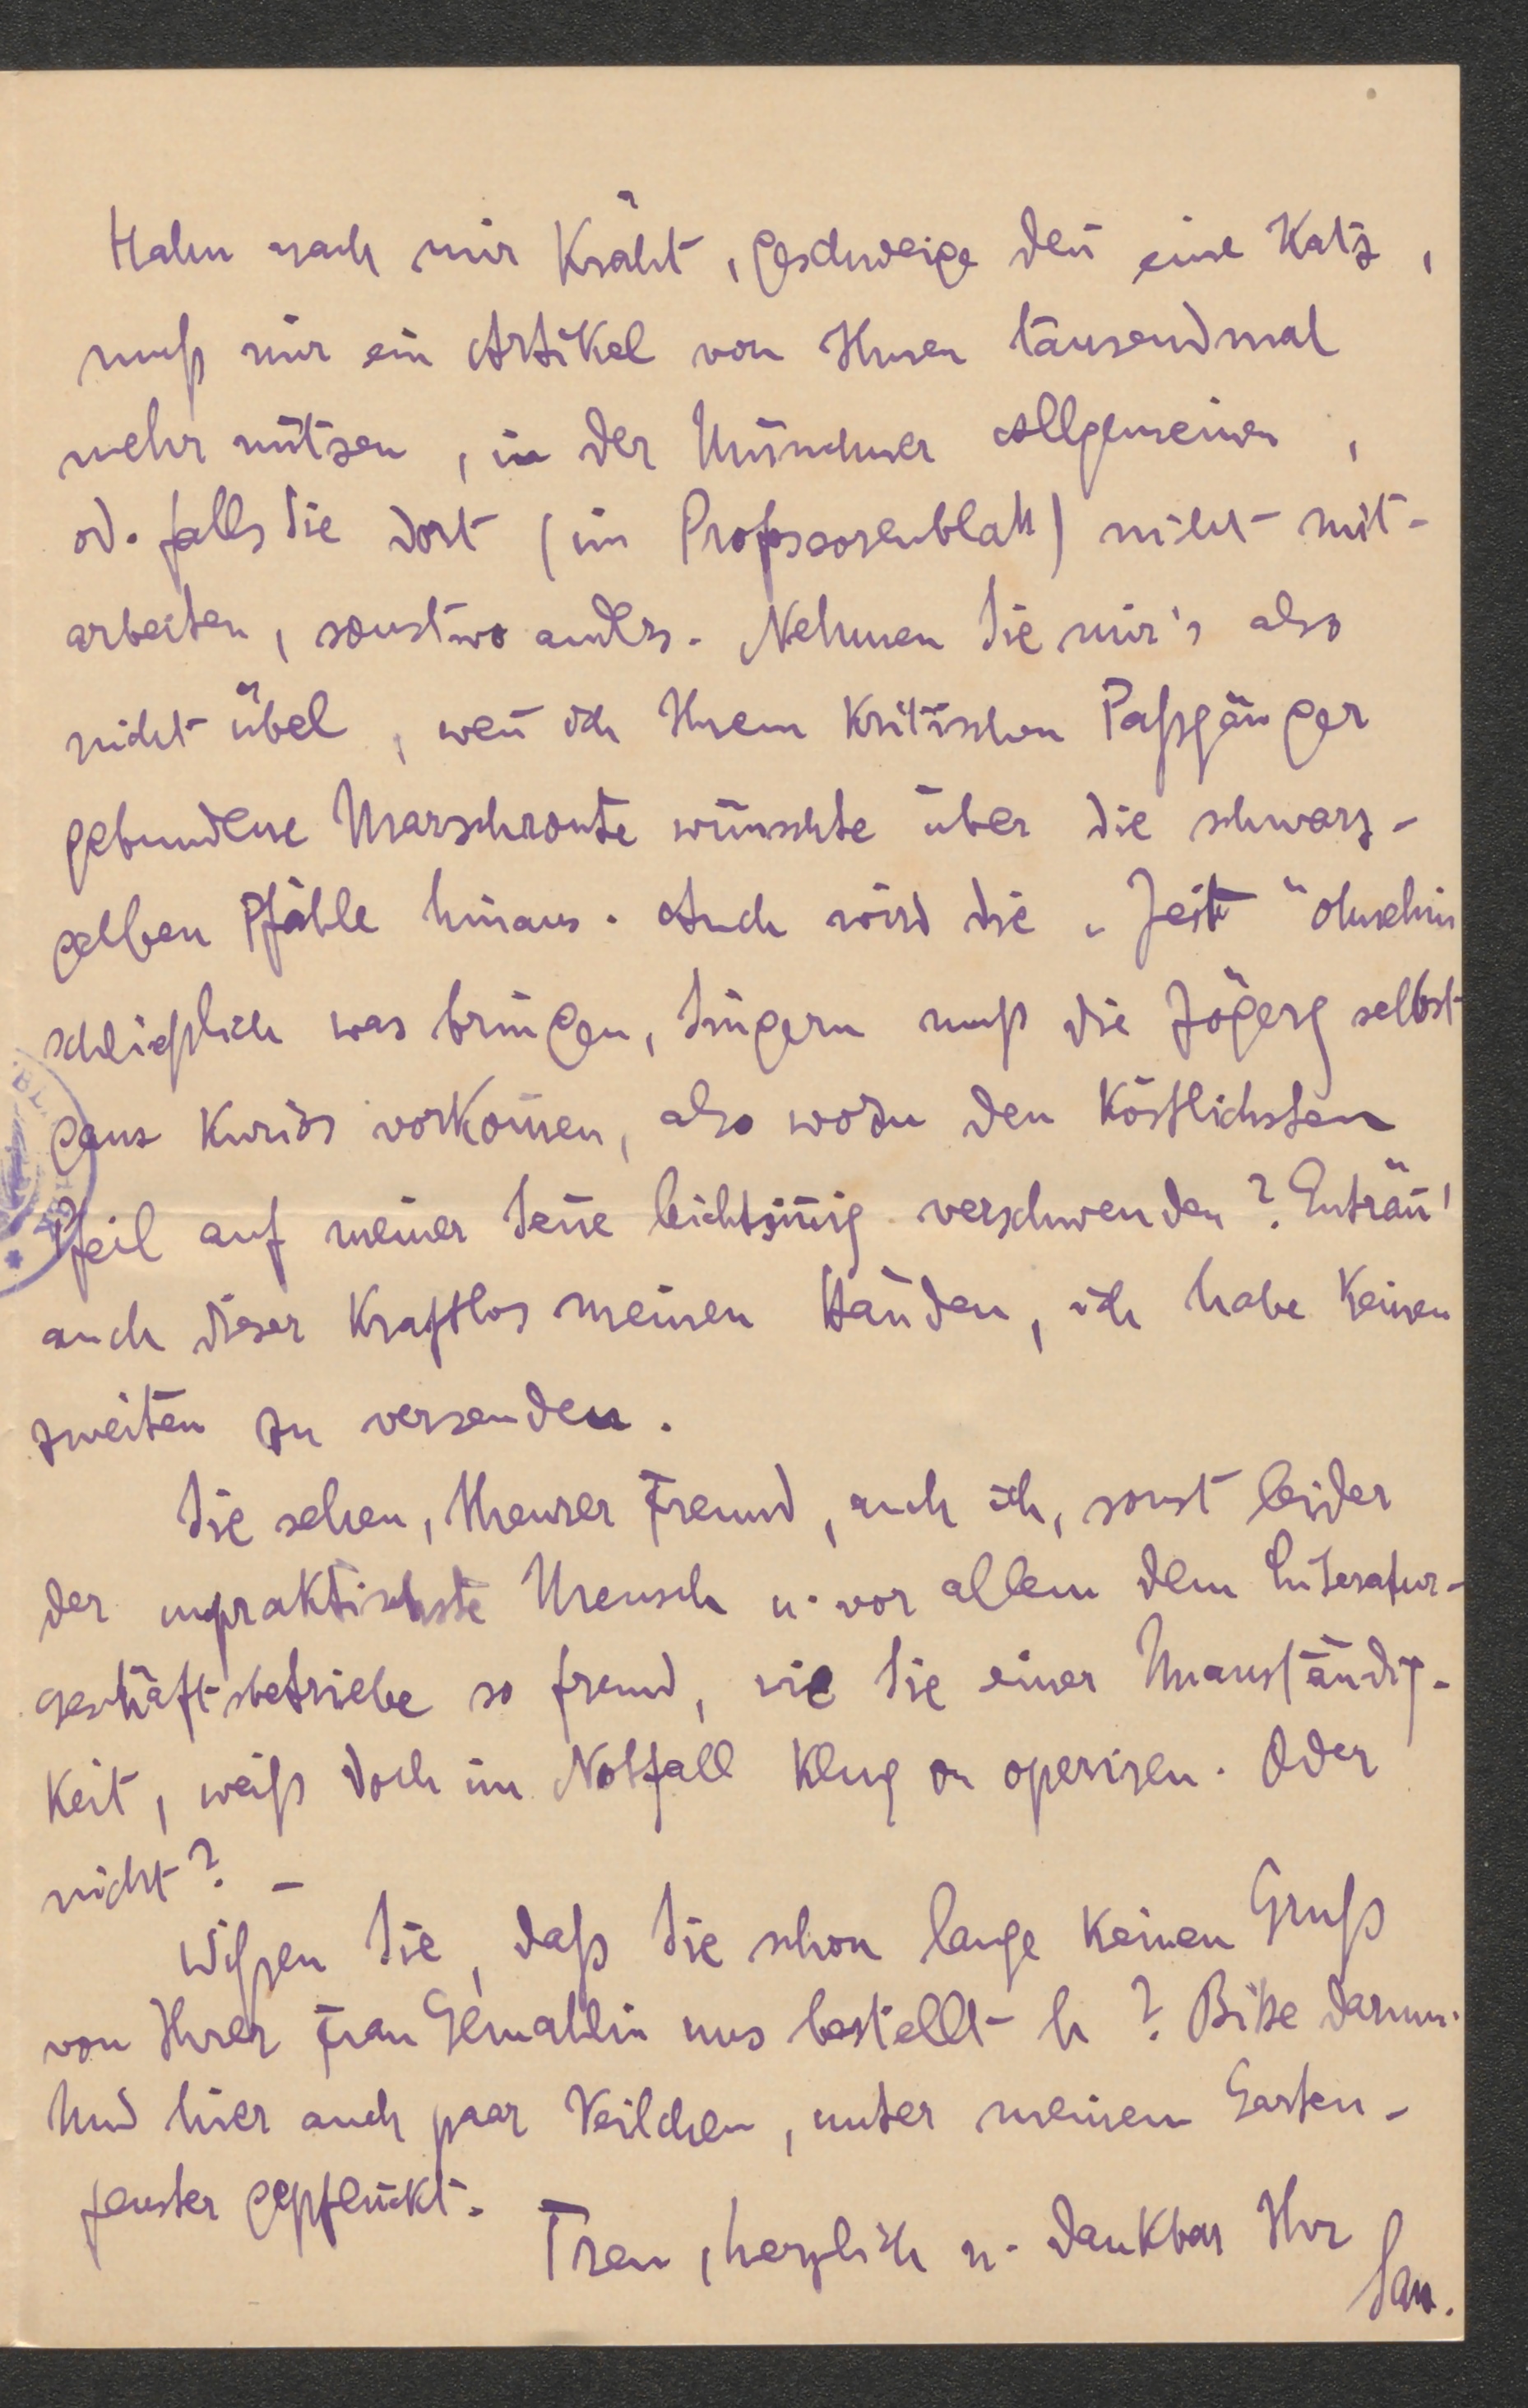 Hahn nach mir kräht, geschweige den̄ eine Katz,
muß mir ein Artikel von Ihnen tausendmal
mehr nützen, in der Münchner Allgemeinen,
od. falls Sie dort (im Professorenblatt) nicht mit-
arbeiten, sonstwo anders. Nehmen Sie mir's also
nicht übel, wen̄ ich Ihrem kritischen Paßgänger
gebundene Marschroute wünschte über die schwarz-
gelben Pfähle hinaus. Auch wird die „Zeit" ohnehin
schließlich was bringen, Singern muß die Zögerg selbst
ganz kurios vorkom̄en, also wozu den köstlichsten
Pfeil auf meiner Sen̄e leichtsin̄ig verschwenden? Enträn̄'
auch dieser kraftlos meinen Händen, ich habe keinen
zweiten zu versenden.
Sie sehen, theurer Freund, auch ich, sonst leider
der unpraktischste Mensch u. vor allem dem Literatur-
geschäftsbetriebe so fremd, wie Sie einer Unanständig-
keit, weiß doch im Notfall klug zu operiren. Oder
nicht? –
Wißen Sie, daß Sie schon lange keinen Gruß
von Ihrer Frau Gemahlin uns bestellt h? Bitte darum.
Und hier auch paar Veilchen, unter meinem Garten-
fenster gepflückt.
Treu, herzlich u. dankbar Ihr
Sau.